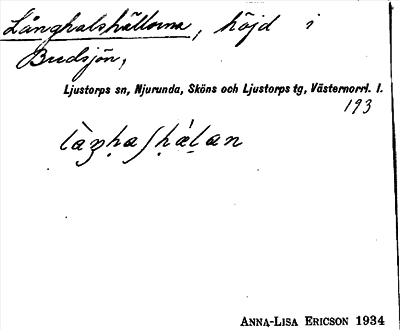 Långhalshällorna, höjd i
Budsjön,
Ljustorps sn, Njurunda, Sköns och Ljustorps tg, Västernorrl. l.
193
ANNA-LISA ERICSON 1934